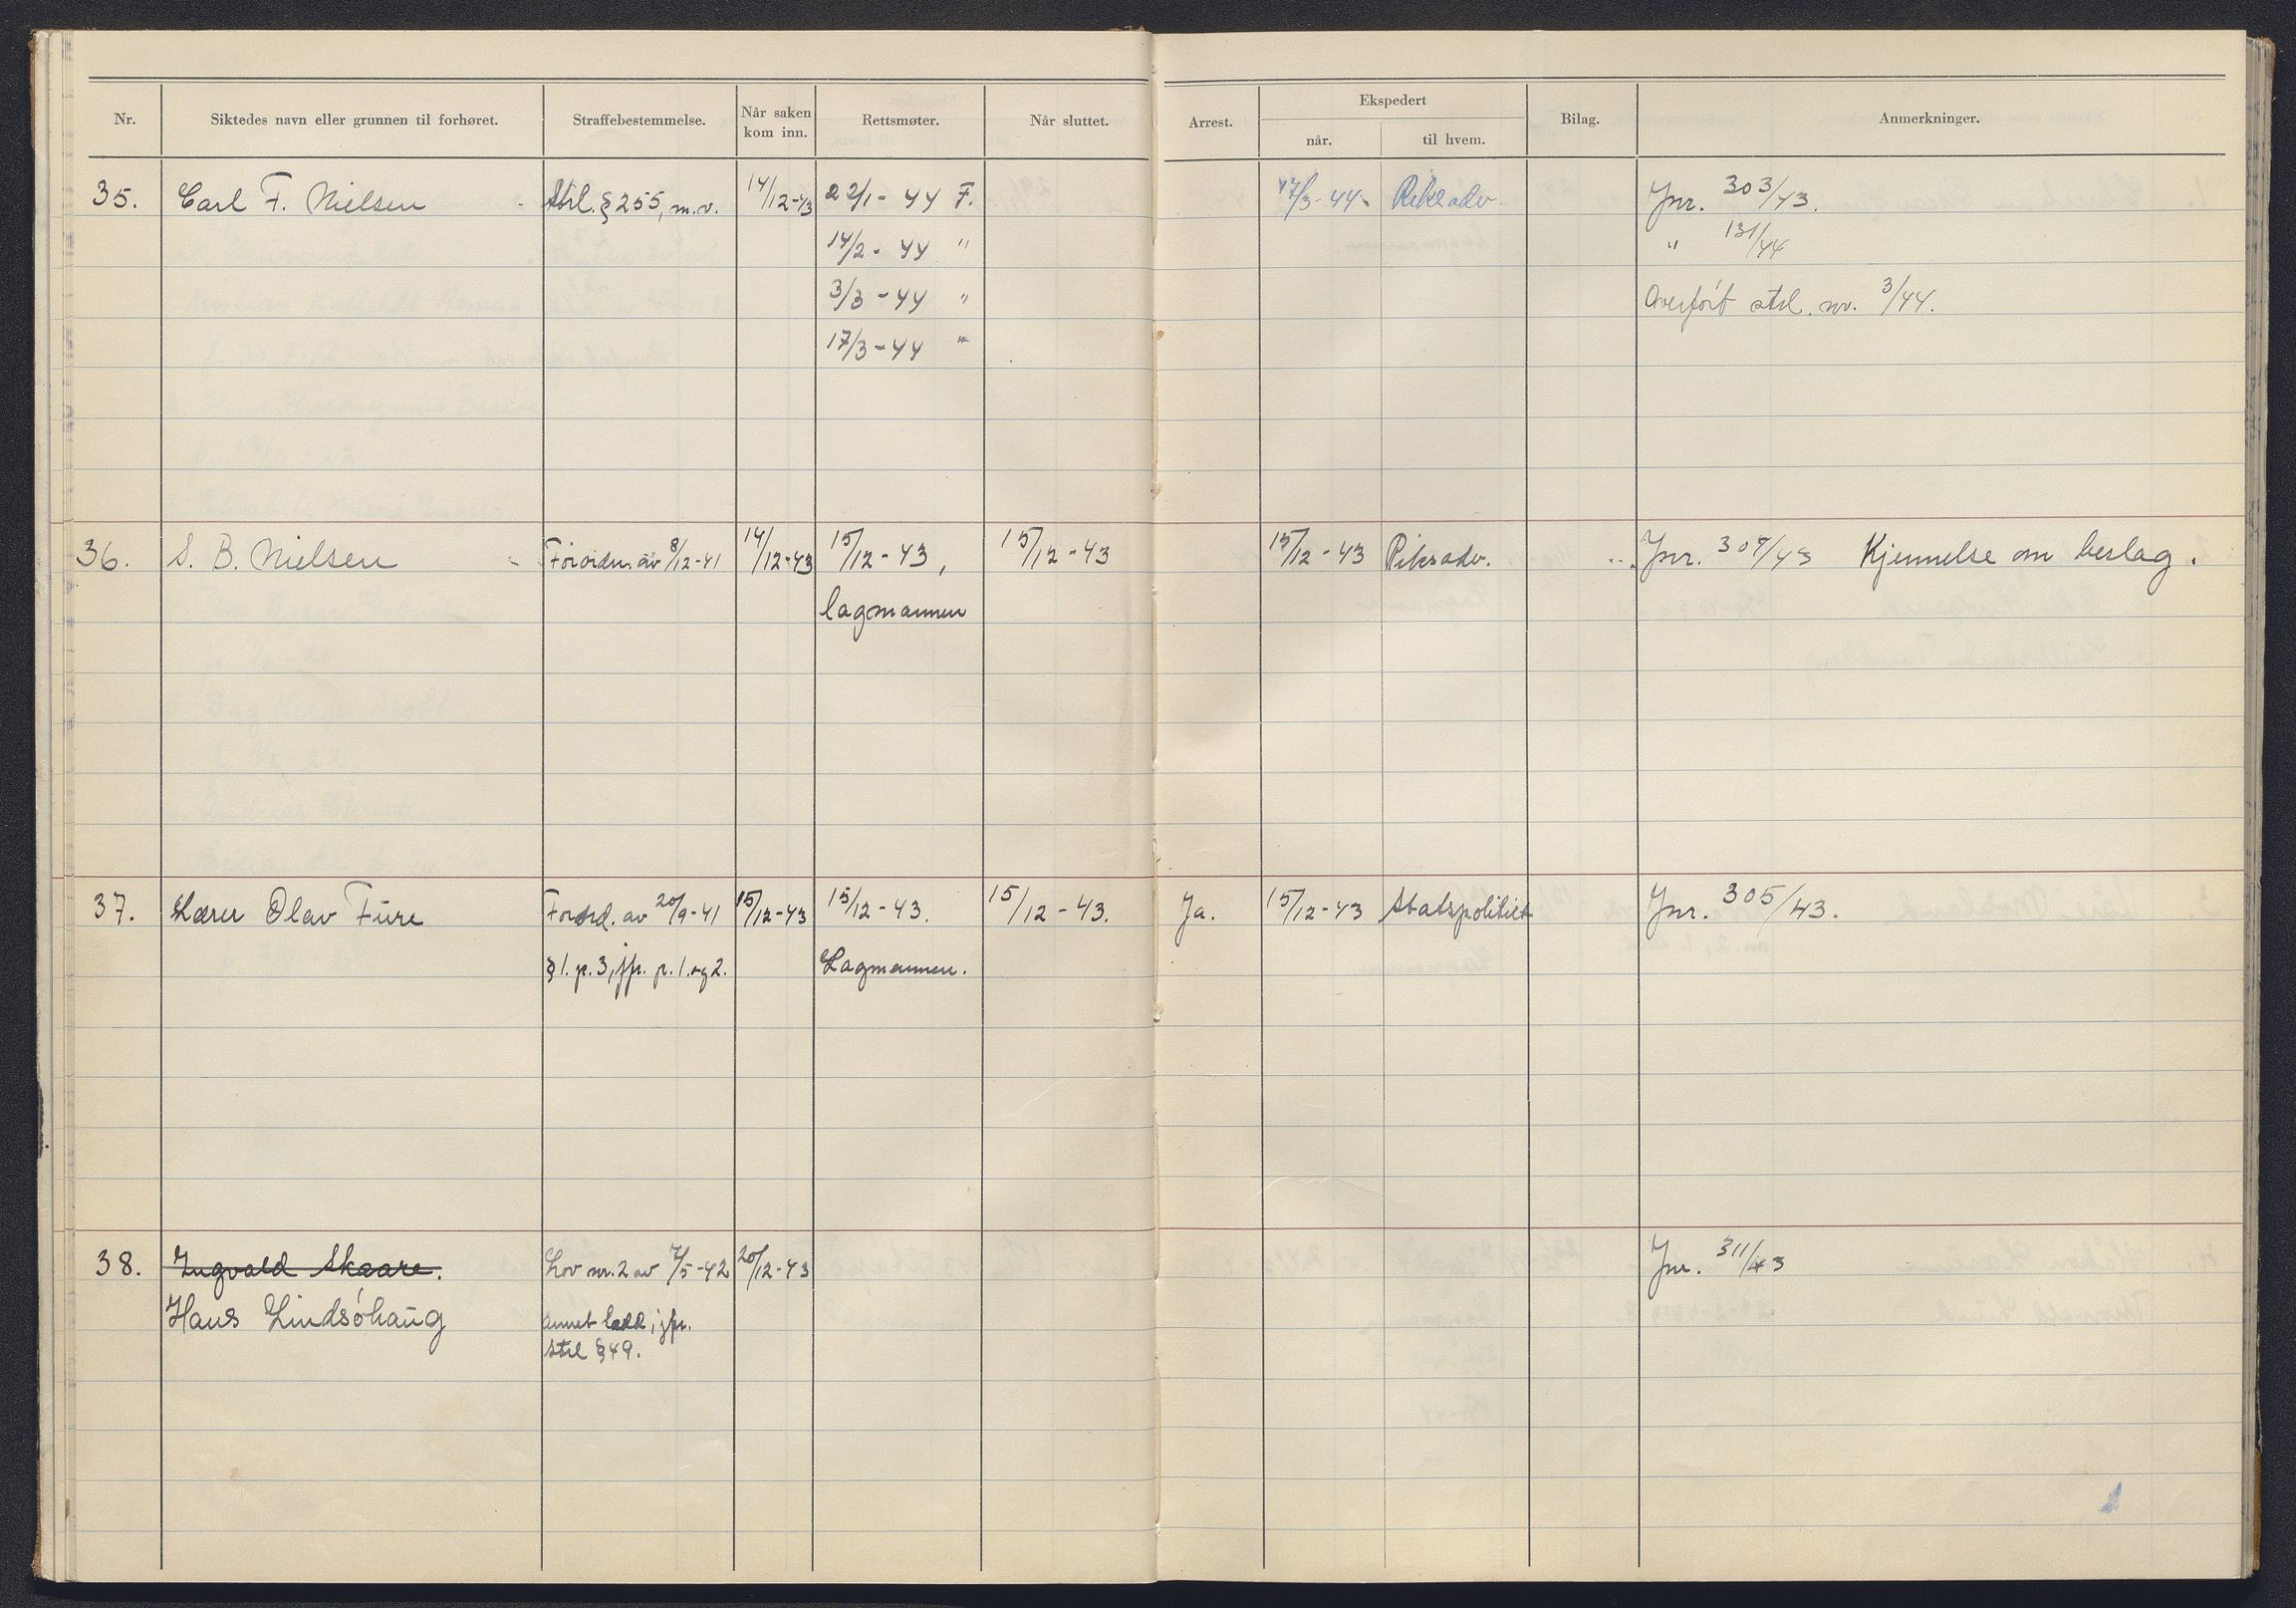 Nr. Siktedes navn eller grunnen til forhøret. Straffebestemmelse. Når saken kom inn. Rettsmøter. Når sluttet. Arrest. Ekspedert når. til hvem. Bilag. Anmerkninger.
35. Carl F. Nielsen Strl. § 255, m.v. 14/12-43 22/1-44 F. 17/3-44. Riksadv. Jnr. 303/43.
14/2-44 " " 131/44
3/3-44 " Overfört strl. nr. 3/44.
17/3-44 "
36. S. B. Nielsen Forordn. av 8/12-41 14/12-43 15/12-43, 15/12-43 15/12-43 Riksadv. Jnr. 304/43 Kjennelse om beslag.
lagmannen
37. Lærer Olav Fure Forord. av 20/9-41 15/12-43 15/12-43. 15/12-43. Ja. 15/12-43 Statspolitiet Jnr. 305/43.
§ 1. p. 3, jfr. p. 1. og 2. Lagmannen.
38. Ingvald Skaare. Lov nr. 2 av 7/5-42 20/12-43 Jnr. 311/43
Hans Lindsóhaug annet ledd, jfr.
strl § 49.